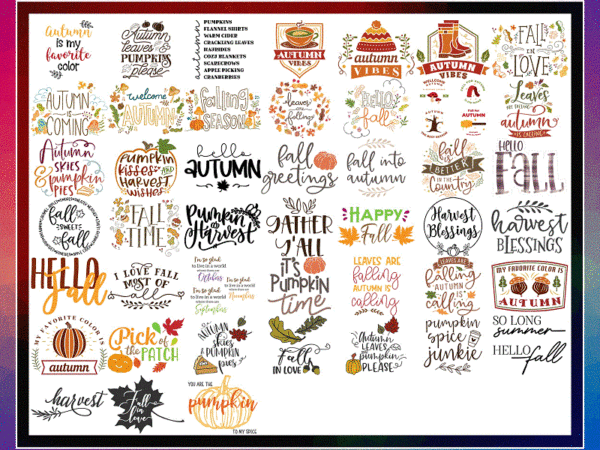 Autumn
is my
favorite
color
Autumn
leaves &
PUMPKINS
please
PUMPKINS
FLANNEL SHIRTS
WARM CIDER
CRACKLING LEAVES
HAYRIDES
COZY BLANKETS
SCARECROWS
APPLE PICKING
CRANBERRIES
AUTUMN
VIBES
AUTUMN
VIBES
AUTUMN
VIBES
FALL
IN
LOVE
AUTUMN
IS COMING
welcome
AUTUMN
falling
SEASON
leaves
are
falling
HELLO
fall
Leaves
are falling
autumn
IS CALLING
Autumn
SKIES
& pumpkin
PIES
Pumpkin
kisses AND
Harvest
WISHES
hello
AUTUMN
fall
greetings
fall into
autumn
fall is
BETTER
in the
Country
HELLO
FALL
fall
SWEET
fall
FALL
TIME
Pumpkin
Harvest
GATHER
Y'ALL
it's
Pumpkin
time
HAPPY
Fall
Harvest
Blessings
harvest
BLESSINGS
HELLO
fall
I LOVE FALL
MOST OF
all
I'm so glad
to live in a world
where there are
Octobers
I'm so glad
to live in a world
where there are
Novembers
I'm so glad
to live in a world
where there are
Septembers
LEAVES ARE
falling
AUTUMN IS
calling
LEAVES ARE
falling
AUTUMN
IS
calling
MY FAVORITE COLOR IS
AUTUMN
MY FAVORITE COLOR IS
autumn
Pick of
the PATCH
AUTUMN
SKIES
& PUMPKIN
pies
Fall
IN LOVE
Autumn
LEAVES &
pumpkin
PLEASE
pumpkin
spice
junkie
SO LONG
summer
HELLO fall
harvest
Fall
in
love
YOU ARE THE
pumpkin
TO MY SPICE